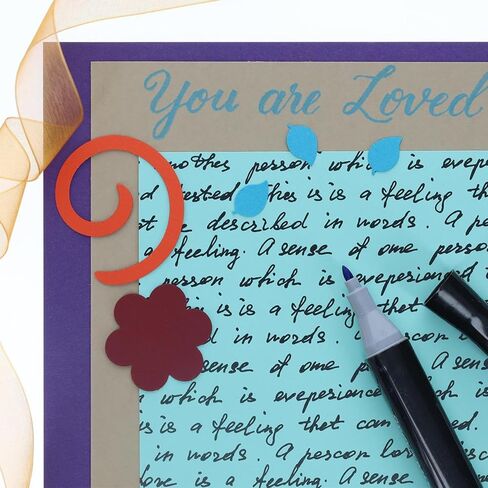 You are Loved
another person which is
tested. This is a feeling tha
be described in words. A pe
a feeling. A sense of one perso
person which is experienced
is is a feeling that
d in words. A perso
sense of one p
which is eveperience
is a feeling that can
in words. A person
love is a feeling. A sense